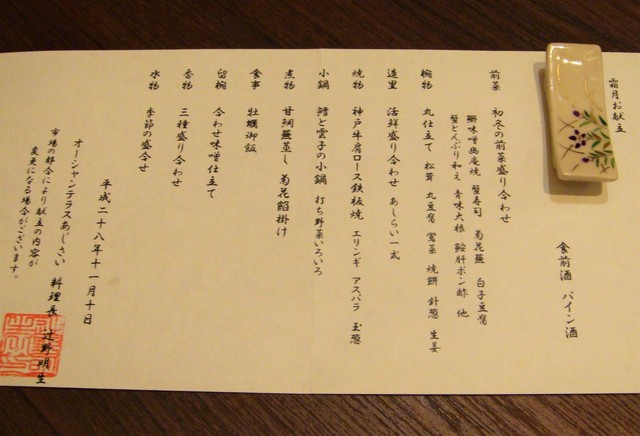 霜月お献立
食前酒 パイン酒
前菜 初冬の前菜盛り合わせ
鰤味噌幽庵焼 蟹寿司 菊花蕪 白子豆腐
蟹とんぶり和え 青味大根 鮟肝ポン酢 他
椀物 丸仕立て 松茸 丸豆腐 鶯菜 焼餅 針葱 生姜
造里 活鮮盛り合わせ あしらい一式
焼物 神戸牛肩ロース鉄板焼 エリンギ アスパラ 玉葱
小鍋 鱈と雲子の小鍋 打ち野菜いろいろ
煮物 甘鯛蕪蒸し 菊花餡掛け
食事 牡蠣御飯
留椀 合わせ味噌仕立て
香物 三種盛り合わせ
水物 季節の盛合せ
平成二十八年十一月十日
オーシャンテラスあじさい 料理長 辻野明生
市場の都合により献立の内容が
変更になる場合がございます。